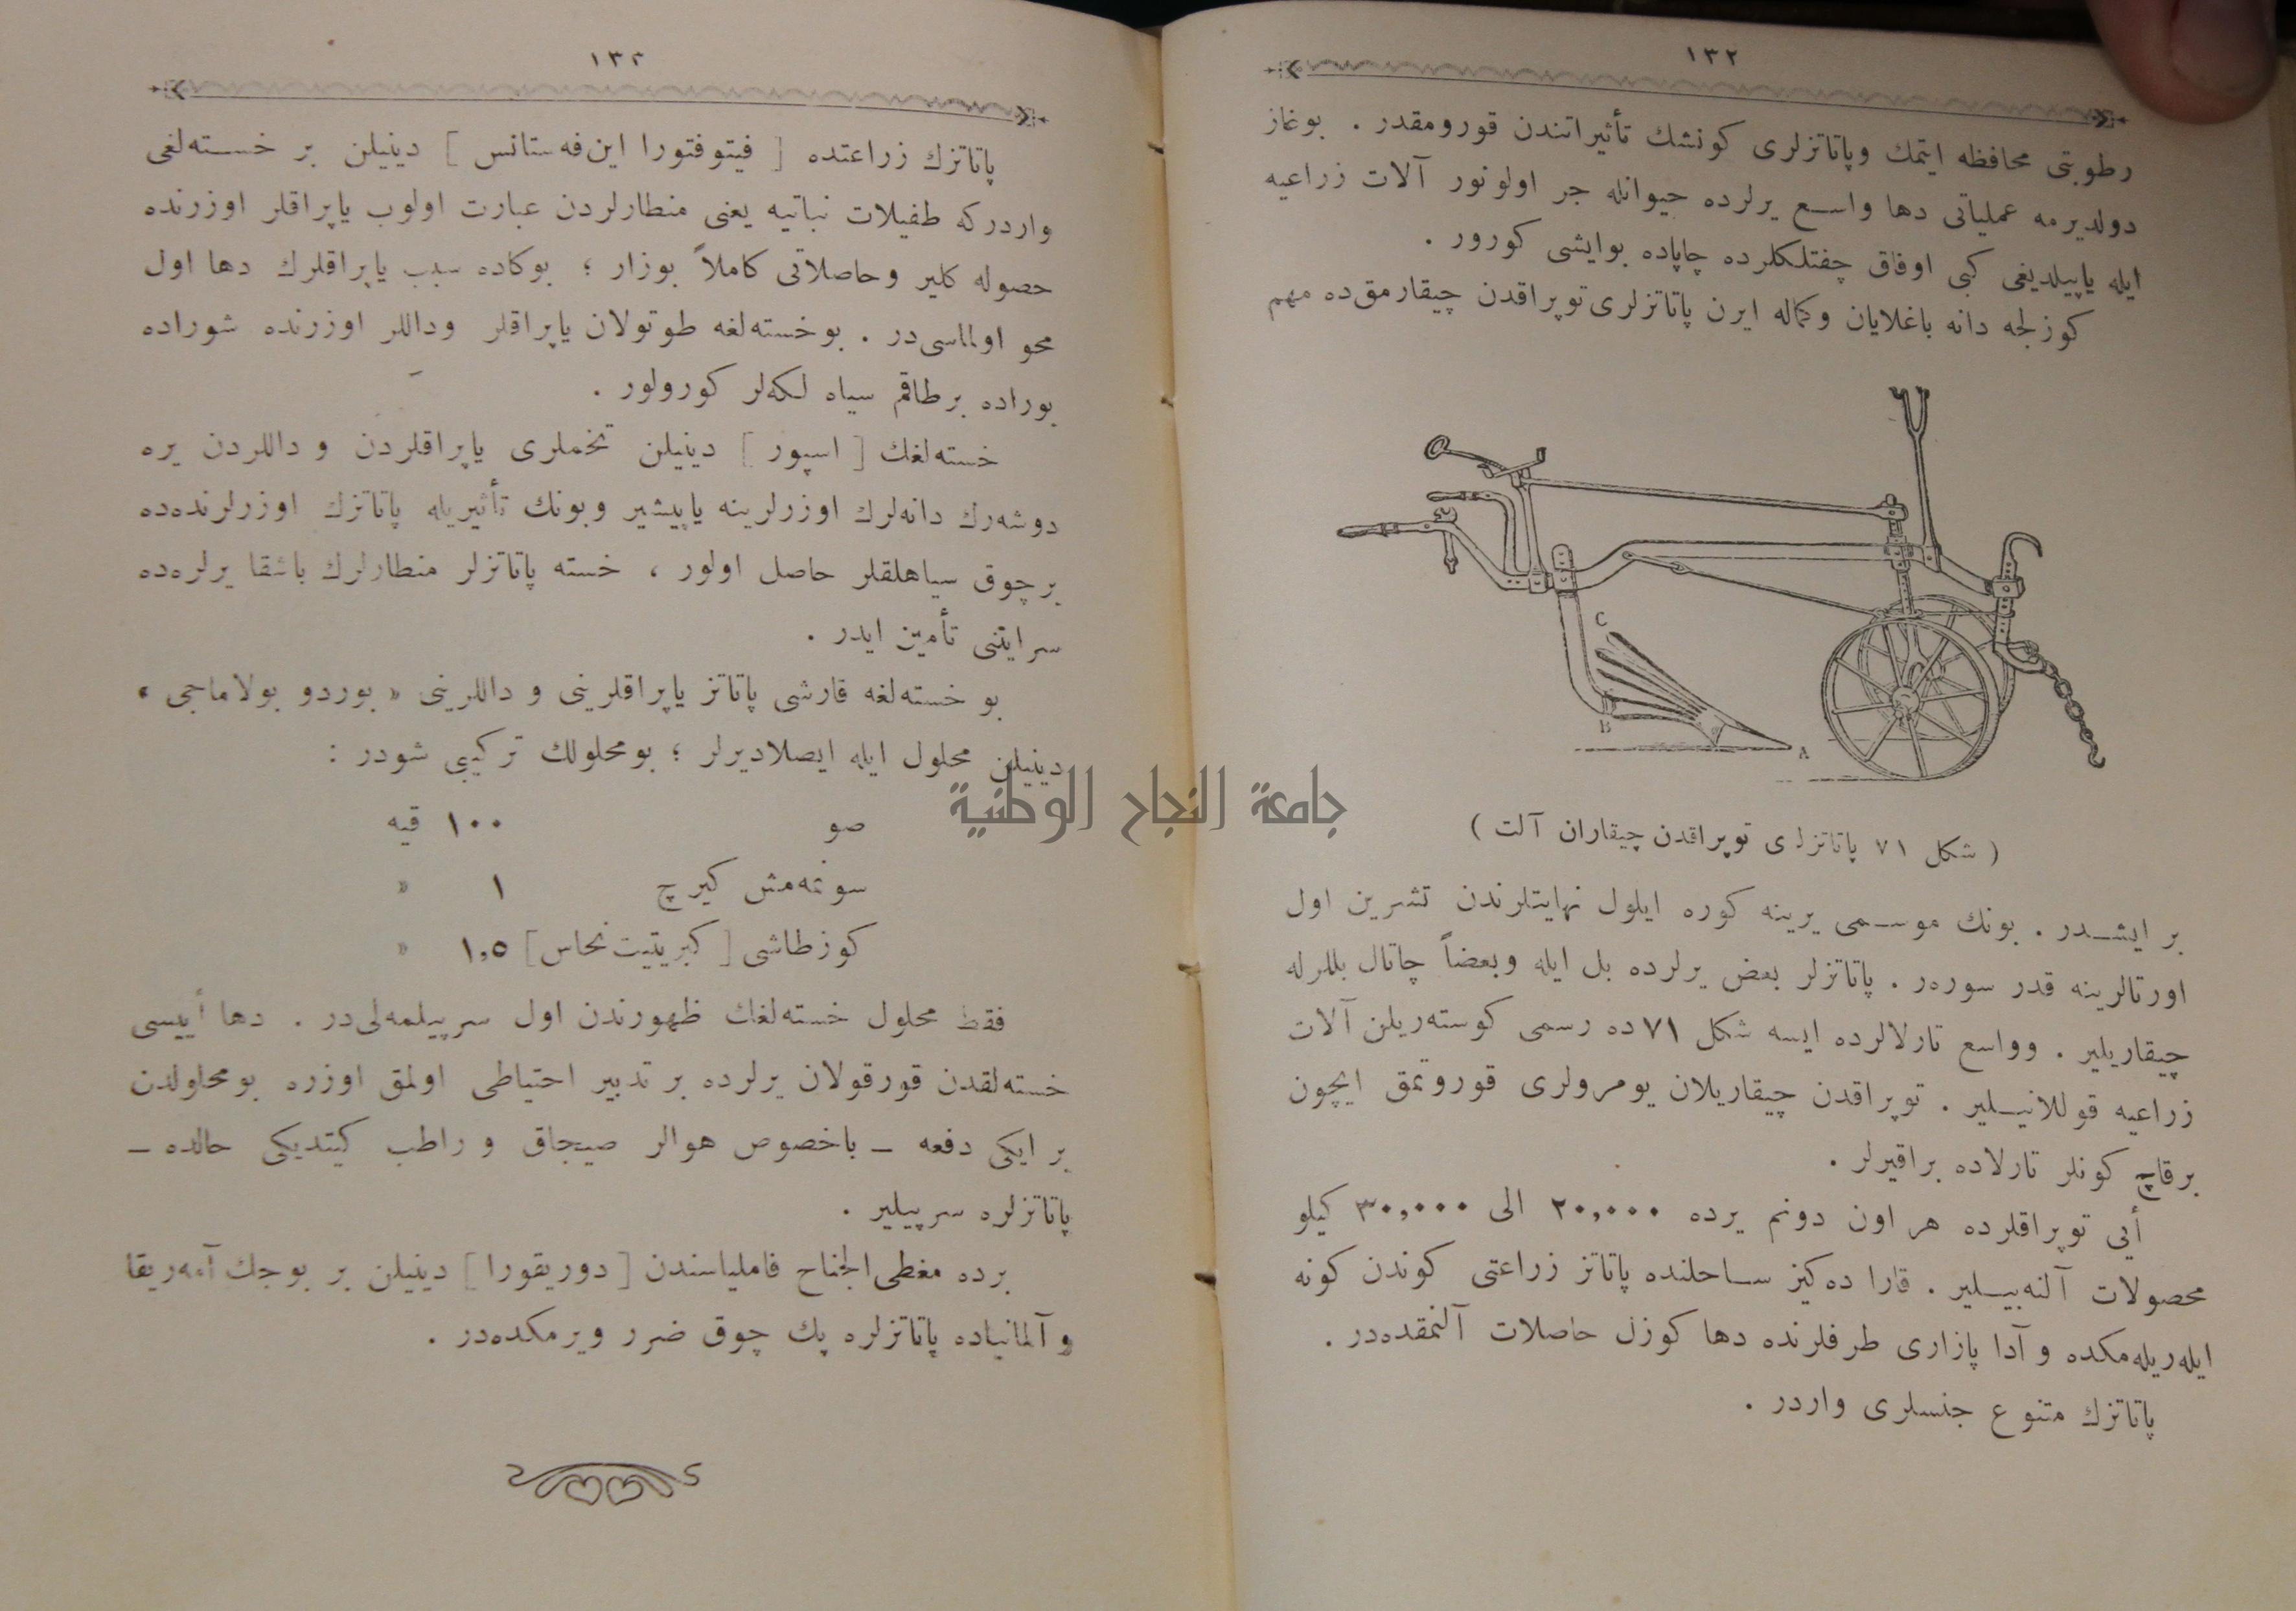 ١٣٢
رطوبتی محافظه ايتمك وپاتاتزلری كونشك تأثيراتندن قورومقدر . بوغاز
دولديرمه عملياتی دها واسع يرلرده حيوانله جر اولونور آلات زراعيه
ايله ياپيلديغی كبی اوفاق چفتلكلرده چاپاده بوايشی كورور .
كوزلجه دانه باغلايان وكماله ايرن پاتاتزلری توپراقدن چيقارمق‌ده مهم
C
B
A
( شكل ٧١ پاتاتزلری توپراقدن چيقاران آلت )
بر ايشدر . بونك موسمی يرينه كوره ايلول نهايتلرندن تشرين اول
اورتالرينه قدر سوره‌ر . پاتاتزلر بعض يرلرده بل ايله وبعضاً چاتال بللرله
چيقاريلير . وواسع تارلالرده ايسه شكل ٧١ ده رسمی كوسته‌ريلن آلات
زراعيه قوللانيلير . توپراقدن چيقاريلان يومرولری قوروتمق ايچون
برقاچ كونلر تارلاده براقيرلر .
أيی توپراقلرده هر اون دونم يرده ٢٠,٠٠٠ الی ٣٠,٠٠٠ كيلو
محصولات آلنه‌بيلير . قارا ده‌كيز ساحلنده پاتاتز زراعتی كوندن كونه
ايله‌ريله‌مكده و آدا پازاری طرفلرنده دها كوزل حاصلات آلنمقده‌در .
پاتاتزك متنوع جنسلری واردر .
جامعة النجاح الوطنية
١٣٣
پاتاتزك زراعتده [ فيتوفتورا اين‌فه‌ستانس ] دينيلن بر خسته‌لغی
واردركه طفيلات نباتيه يعنی منطارلردن عبارت اولوب ياپراقلر اوزرنده
حصوله كلير وحاصلاتی كاملاً بوزار ؛ بوكاده سبب ياپراقلرك دها اول
محو اولماسی‌در . بوخسته‌لغه طوتولان ياپراقلر وداللر اوزرنده شوراده
بوراده برطاقم سياه لكه‌لر كورولور .
خسته‌لغك [ اسپور ] دينيلن تخملری ياپراقلردن و داللردن يره
دوشه‌رك دانه‌لرك اوزرلرينه ياپيشير وبونك تأثيريله پاتاتزك اوزرلرنده‌ده
برچوق سياهلقلر حاصل اولور ، خسته پاتاتزلر منطارلرك باشقا يرلره‌ده
سرايتنی تأمين ايدر .
بو خسته‌لغه قارشی پاتاتز ياپراقلرينی و داللرينی « بوردو بولاماجی »
دينيلن محلول ايله ايصلاديرلر ؛ بومحلولك تركيبی شودر :
صو ١٠٠ قيه
سونمه‌مش كيرچ ١ »
كوزطاشی [ كبريتيت نحاس ] ١,٥ »
فقط محلول خسته‌لغك ظهورندن اول سرپيلمه‌لی‌در . دها أييسی
خسته‌لقدن قورقولان يرلرده بر تدبير احتياطی اولمق اوزره بومحلولدن
بر ايكی دفعه ـ باخصوص هوالر صيجاق و راطب كيتديكی حالده ـ
پاتاتزلره سرپيلير .
برده مغطی‌الجناح فاملياسندن [ دوريقورا ] دينيلن بر بوجك آمه‌ريقا
و آلمانياده پاتاتزلره پك چوق ضرر ويرمكده‌در .